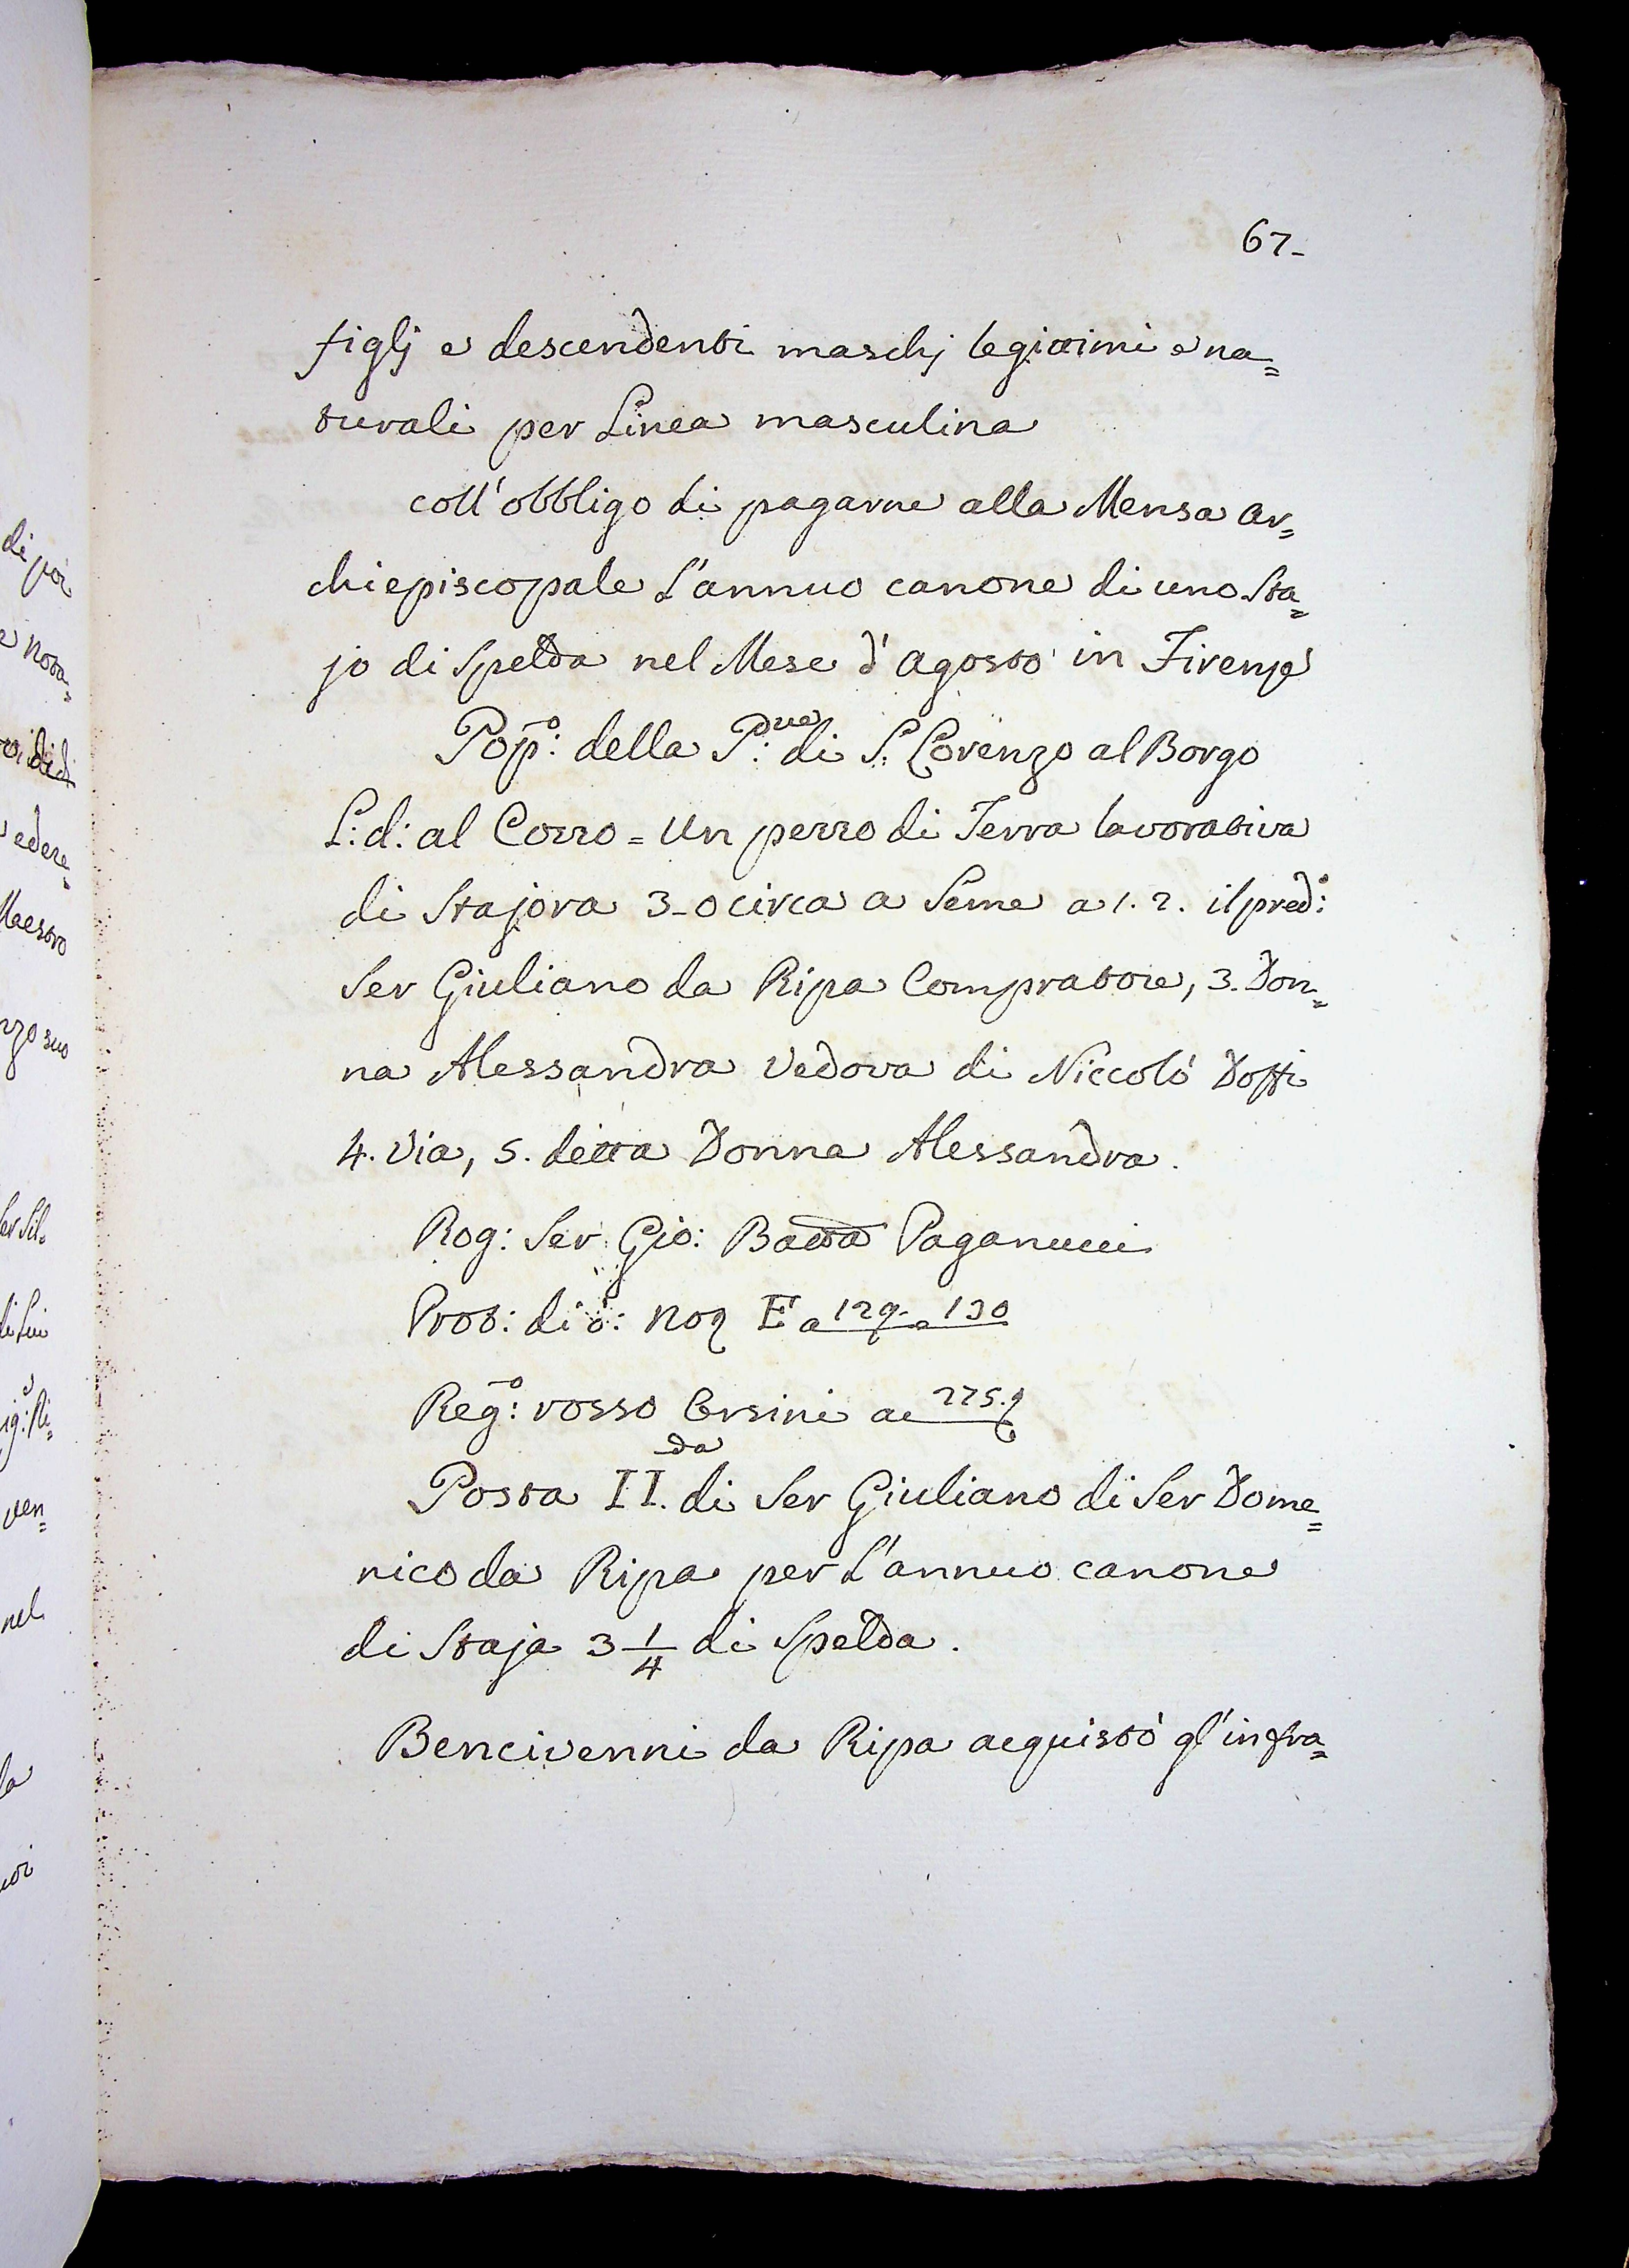 67-
figlj e descendenti maschj legittimi e na=
turali per Linea masculina
coll'obbligo di pagarne alla Mensa Ar=
chiepiscopale L'annuo canone di uno Sta=
jo di Spelda nel Mese d'Agosto in Firenze
Pop:º della P:ve di S. Lorenzo al Borgo
L: d: al Cozzo = Un pezzo di Terra lavorativa
di Stajora 3-0 circa a Seme a 1. 2. il pred:º
Ser Giuliano da Ripa Compratore, 3. Don=
na Alessandra Vedova di Niccolò Doffi
4. Via, 5. detta Donna Alessandra.
Rog: Ser Gio: Batta Paganucci
Prot: di ò: No2 E a 129. a 130
Reg:º rosso Orsini a 225.
Posta II.da di Ser Giuliano di Ser Dome=
nico da Ripa per L'annuo canone
di Staja 3 1/4 di Spelda.
Bencivenni da Ripa acquistò gl'infra=
di poi
e Nota=
edere
Maestro
nzo suo
Ser Sil=
di Lui
ven=
nel
la